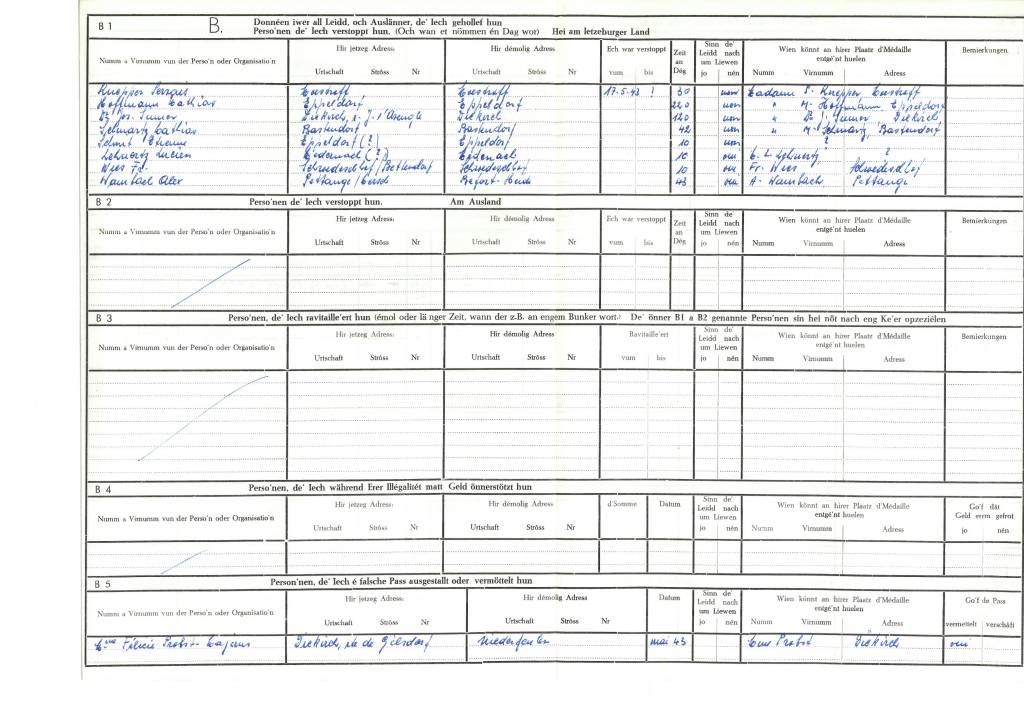 B 1 B. Donnéen iwer all Leidd, och Auslänner, de' Iech gehollef hun
Perso'nen de' Iech verstoppt hun. (Och wan et nömmen én Dag wor) Hei am letzeburger Land
Numm a Virnumm vun der Perso'n oder Organisatio'n Hir jetzeg Adress: Hir démolig Adress Ech war verstoppt Zeit an Dég Sinn de' Leidd nach um Liewen Wien könnt an hirer Plaatz d'Médaille entgé'nt huelen Bemierkungen
Urtschaft Ströss Nr Urtschaft Ströss Nr vum bis jo nén Numm Virnumm Adress
Knepper 17.5.43 ! 30 non Madame Knepper
Hoffmann Mathias Eppeldorf Eppeldorf 220 non " M. Hoffmann, Eppeldorf
Diekirch, Diekirch 120 non " Diekirch
Mathias Bastendorf Bastendorf 42 non " Bastendorf
Etienne Eppeldorf (?) Eppeldorf 10 non ?
Lucien (?) 10 oui ?
Wies Fr. / Bettendorf 10 oui Fr. Wies
Wambach Alex Pettange / Mersch 43 oui A. Wambach Pettange
B 2 Perso'nen de' Iech verstoppt hun. Am Ausland
Numm a Virnumm vun der Perso'n oder Organisatio'n Hir jetzeg Adress: Hir démolig Adress Ech war verstoppt Zeit an Dég Sinn de' Leidd nach um Liewen Wien könnt an hirer Plaatz d'Médaille entgé'nt huelen Bemierkungen
Urtschaft Ströss Nr Urtschaft Ströss Nr vum bis jo nén Numm Virnumm Adress
B 3 Perso'nen, de' Iech ravitaille'ert hun (émol oder länger Zeit, wann der z.B. an engem Bunker wort.) De' önner B1 a B2 genannte Perso'nen sin hei nöt nach eng Ke'er opzeziélen
Numm a Virnumm vun der Perso'n oder Organisatio'n Hir jetzeg Adress: Hir démolig Adress Ravitaille'ert Sinn de' Leidd nach um Liewen Wien könnt an hirer Plaatz d'Médaille entgé'nt huelen Bemierkungen
Urtschaft Ströss Nr Urtschaft Ströss Nr vum bis jo nén Numm Virnumm Adress
B 4 Perso'nen, de' Iech während Erer Illégalitét matt Geld önnerstötzt hun
Numm a Virnumm vun der Perso'n oder Organisatio'n Hir jetzeg Adress: Hir démolig Adress d'Somme Datum Sinn de' Leidd nach um Liewen Wien könnt an hirer Plaatz d'Médaille entgé'nt huelen Go'f dât Geld erem gefrot
Urtschaft Ströss Nr Urtschaft Ströss Nr jo nén Numm Virnumm Adress jo nén
B 5 Person'nen, de' Iech é falsche Pass ausgestallt oder vermöttelt hun
Numm a Virnumm vun der Perso'n oder Organisatio'n Hir jetzeg Adress: Hir démolig Adress Datum Sinn de' Leidd nach um Liewen Wien könnt an hirer Plaatz d'Médaille entgé'nt huelen Go'f de Pass
Urtschaft Ströss Nr Urtschaft Ströss Nr jo nén Numm Virnumm Adress vermettelt verschâft
Mme Félicie Probst- Diekirch, rue de Gilsdorf mai 43 Mme Probst Diekirch oui